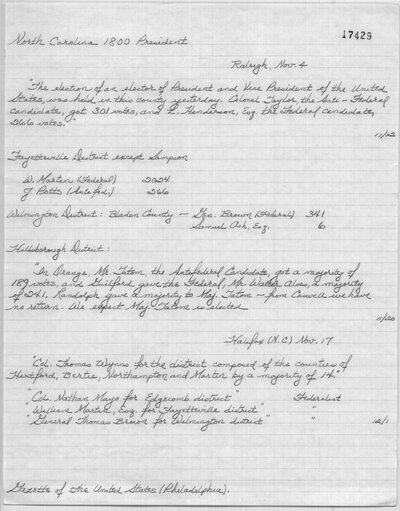 17429
North Carolina 1800 President
Raleigh, Nov. 4
"The election of an elector of President and Vice President of the United
States, was held in this county yesterday. Colonel Taylor, the Anti-Federal
candidate, got 301 votes, and L. Henderson, Esq. the Federal candidate,
266 votes."
11/12
Fayetteville District except Sampson
W. Martin (Federal) 2024
J. Potts (Antifed.) 266
Wilmington District: Bladen County - Gen. Brown (Federal) 341
Samuel Ash, Esq. 6
Hillsborough District:
"In Orange, Mr. Tatom, the Antifederal Candidate, got a majority of
189 votes, and Guilford gave the Federal, Mr. Walter Alves, a majority
of 241. Randolph gave a majority to Maj. Tatom - from Caswell we have
no return. We expect Maj. Tatom is elected
11/20
Halifax (N.C.) Nov. 17
"Col. Thomas Wynns for the district composed of the counties of
Hertford, Bertie, Northampton and Martin by a majority of 14."
"Col. Nathan Mayo for Edgecomb district" Federalist
"William Martin, Esq. for Fayetteville district" "
"General Thomas Brown for Wilmington district" " 12/1
Gazette of the United States (Philadelphia).